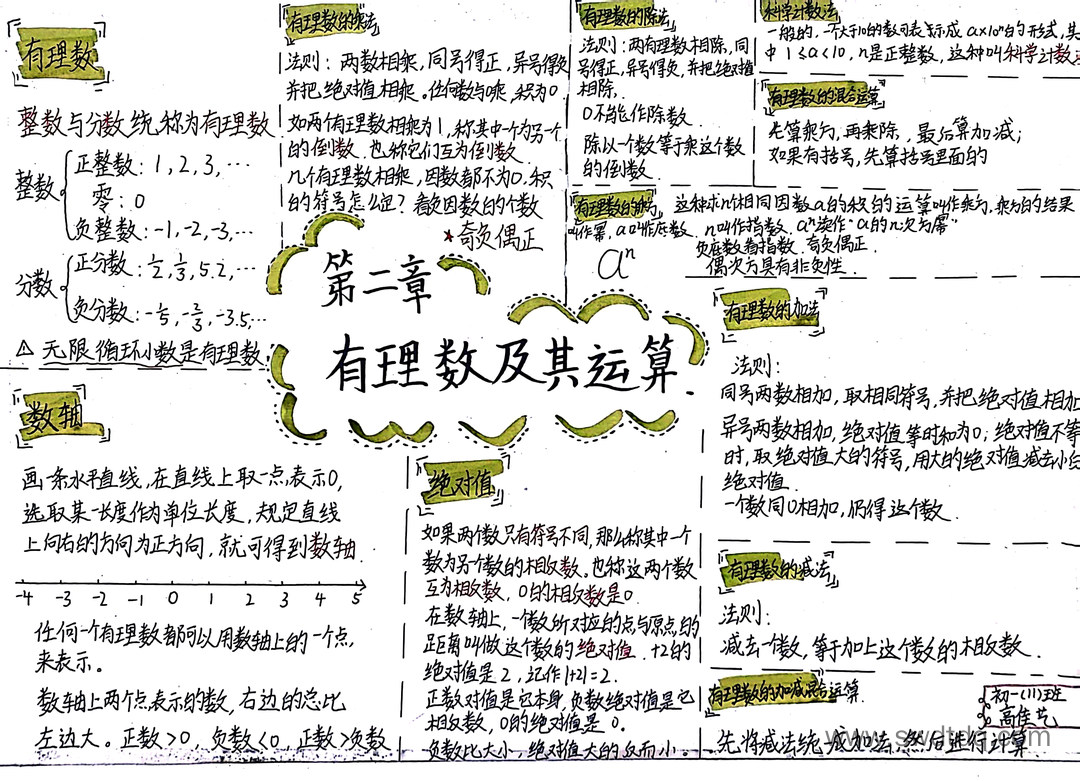 有理数
整数与分数统称为有理数
整数
正整数：1，2，3，…
零：0
负整数：-1，-2，-3，…
分数
正分数：1/2，1/3，5.2，…
负分数：-1/5，-2/3，-3.5，…
△ 无限循环小数是有理数
数轴
画一条水平直线，在直线上取一点表示0，
选取某一长度作为单位长度，规定直线
上向右的方向为正方向，就可得到数轴
-4 -3 -2 -1 0 1 2 3 4 5
任何一个有理数都可以用数轴上的一个点，
来表示。
数轴上两个点表示的数，右边的总比
左边大。正数>0，负数<0，正数>负数
有理数的乘法
法则：两数相乘，同号得正，异号得负
并把绝对值相乘。任何数与0乘，积为0
如两个有理数相乘为1，称其中一个为另一个
的倒数，也称它们互为倒数
几个有理数相乘，因数都不为0，积
的符号怎么定？看负因数的个数
★奇负偶正
第二章
有理数及其运算
绝对值
如果两个数只有符号不同，那么称其中一个
数为另一个数的相反数，也称这两个数
互为相反数，0的相反数是0
在数轴上，一个数所对应的点与原点的
距离叫做这个数的绝对值．+2的
绝对值是2，记作|+2|=2．
正数对值是它本身，负数绝对值是它
相反数，0的绝对值是0．
负数比大小，绝对值大的反而小。
有理数的除法
法则：两有理数相除，同
号得正，异号得负，并把绝对值
相除．
0不能作除数．
除以一个数等于乘这个数
的倒数．
科学计数法
一般的，一个大于10的数可表示成 a×10ⁿ的形式，其
中 1≤a<10，n是正整数，这种叫科学计数法
有理数的混合运算
先算乘方，再乘除，最后算加减；
如果有括号，先算括号里面的
有理数的乘方
这种求n个相同因数a的积的运算叫作乘方，乘方的结果
叫作幂，a叫作底数，n叫作指数，aⁿ读作“a的n次方幂”
aⁿ
负底数看指数，奇负偶正．
偶次方具有非负性．
有理数的加法
法则：
同号两数相加，取相同符号，并把绝对值相加
异号两数相加，绝对值等时和为0；绝对值不等
时，取绝对值大的符号，用大的绝对值减去小的
绝对值．
一个数同0相加，仍得这个数．
有理数的减法
法则：
减去一个数，等于加上这个数的相反数．
有理数的加减混合运算
先将减法统一成加法，然后进行计算
初一(11)班
高佳艺